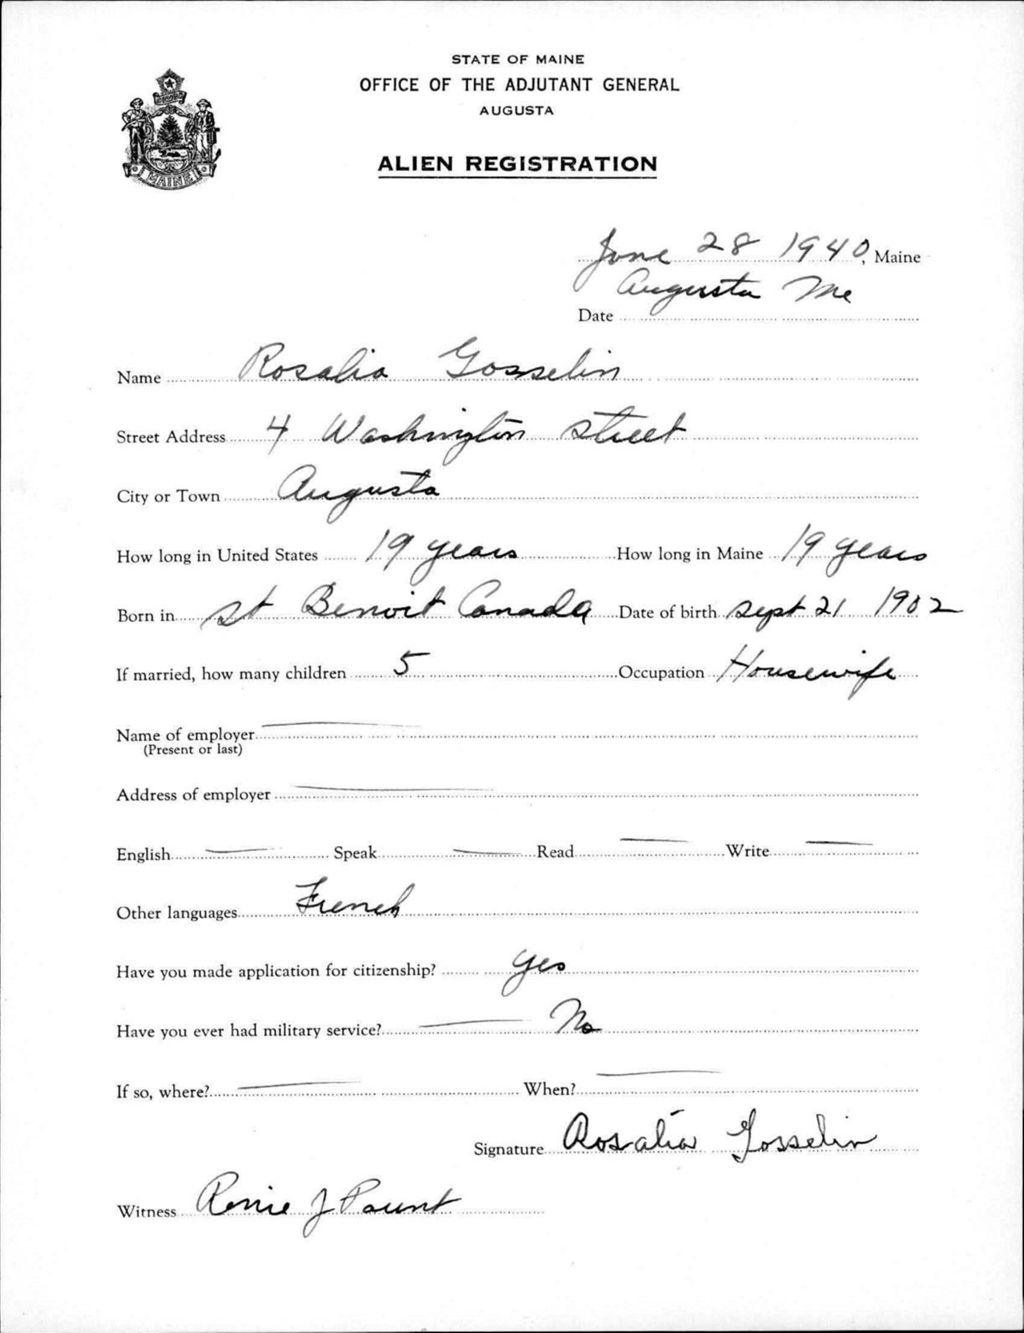 STATE OF MAINE
OFFICE OF THE ADJUTANT GENERAL
AUGUSTA
MAINE
ALIEN REGISTRATION
June 28 1940, Maine
Augusta Me
Date
Name Rosalia Gosselin
Street Address 4 Washington street
City or Town Augusta
How long in United States 19 years How long in Maine 19 years
Born in St Benoit Canada Date of birth Sept 21 1902
If married, how many children 5 Occupation Housewife
Name of employer
(Present or last)
Address of employer
English Speak Read Write
Other languages French
Have you made application for citizenship? yes
Have you ever had military service? No
If so, where? When?
Signature Rosalia Gosselin
Witness J